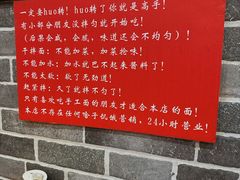 一定要huo转！huo转了你就是高手！
有小部分朋友没拌匀就开始吃！
（后果会咸，会腻，味道还会不均匀）！
干拌面：不能加菜，加菜抢味！
不能加水：加水就巴不起来酱料了！
不能太软：软了无劲道！
赶紧拌：久了就拌不匀了！
只有喜欢吃手工面的朋友才适合本店的面！
本店不存在任何噜子饥饿营销，24小时营业！